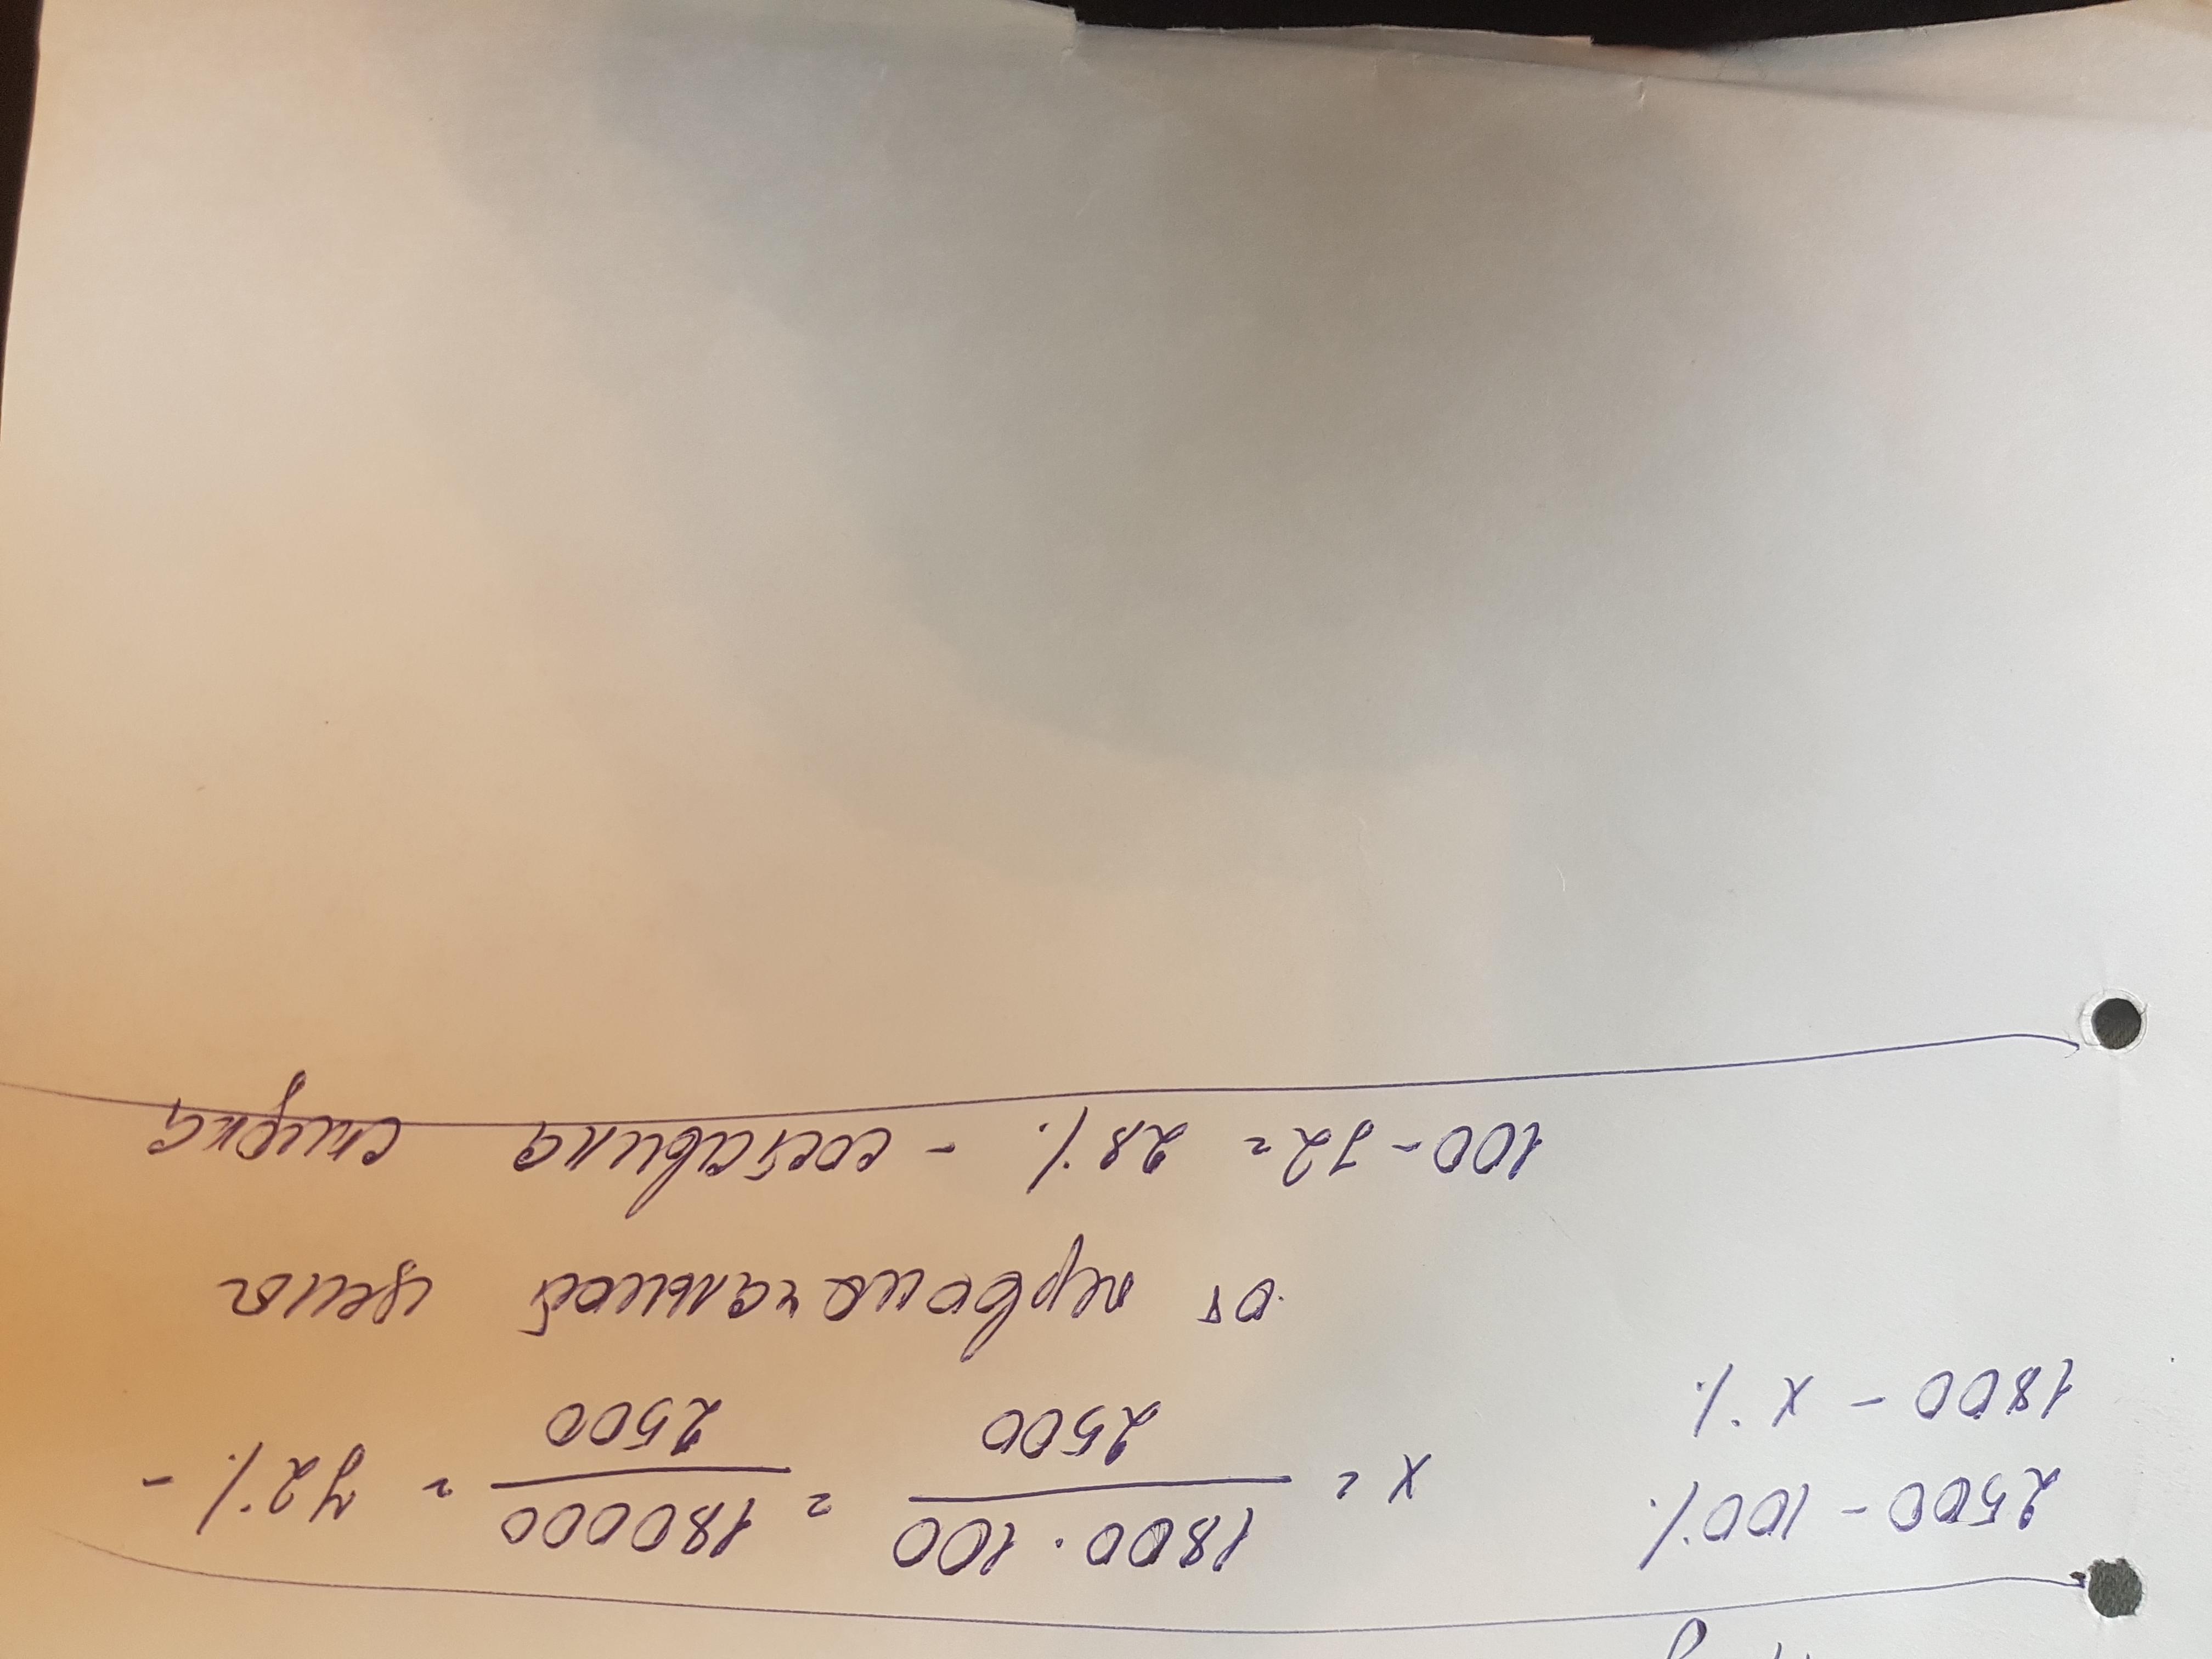 2500 - 100%
1800 - x %
x = 1800 · 100 / 2500 = 180000 / 2500 = 72% -
от первоначальной цены
100 - 72 = 28% - составила скидка